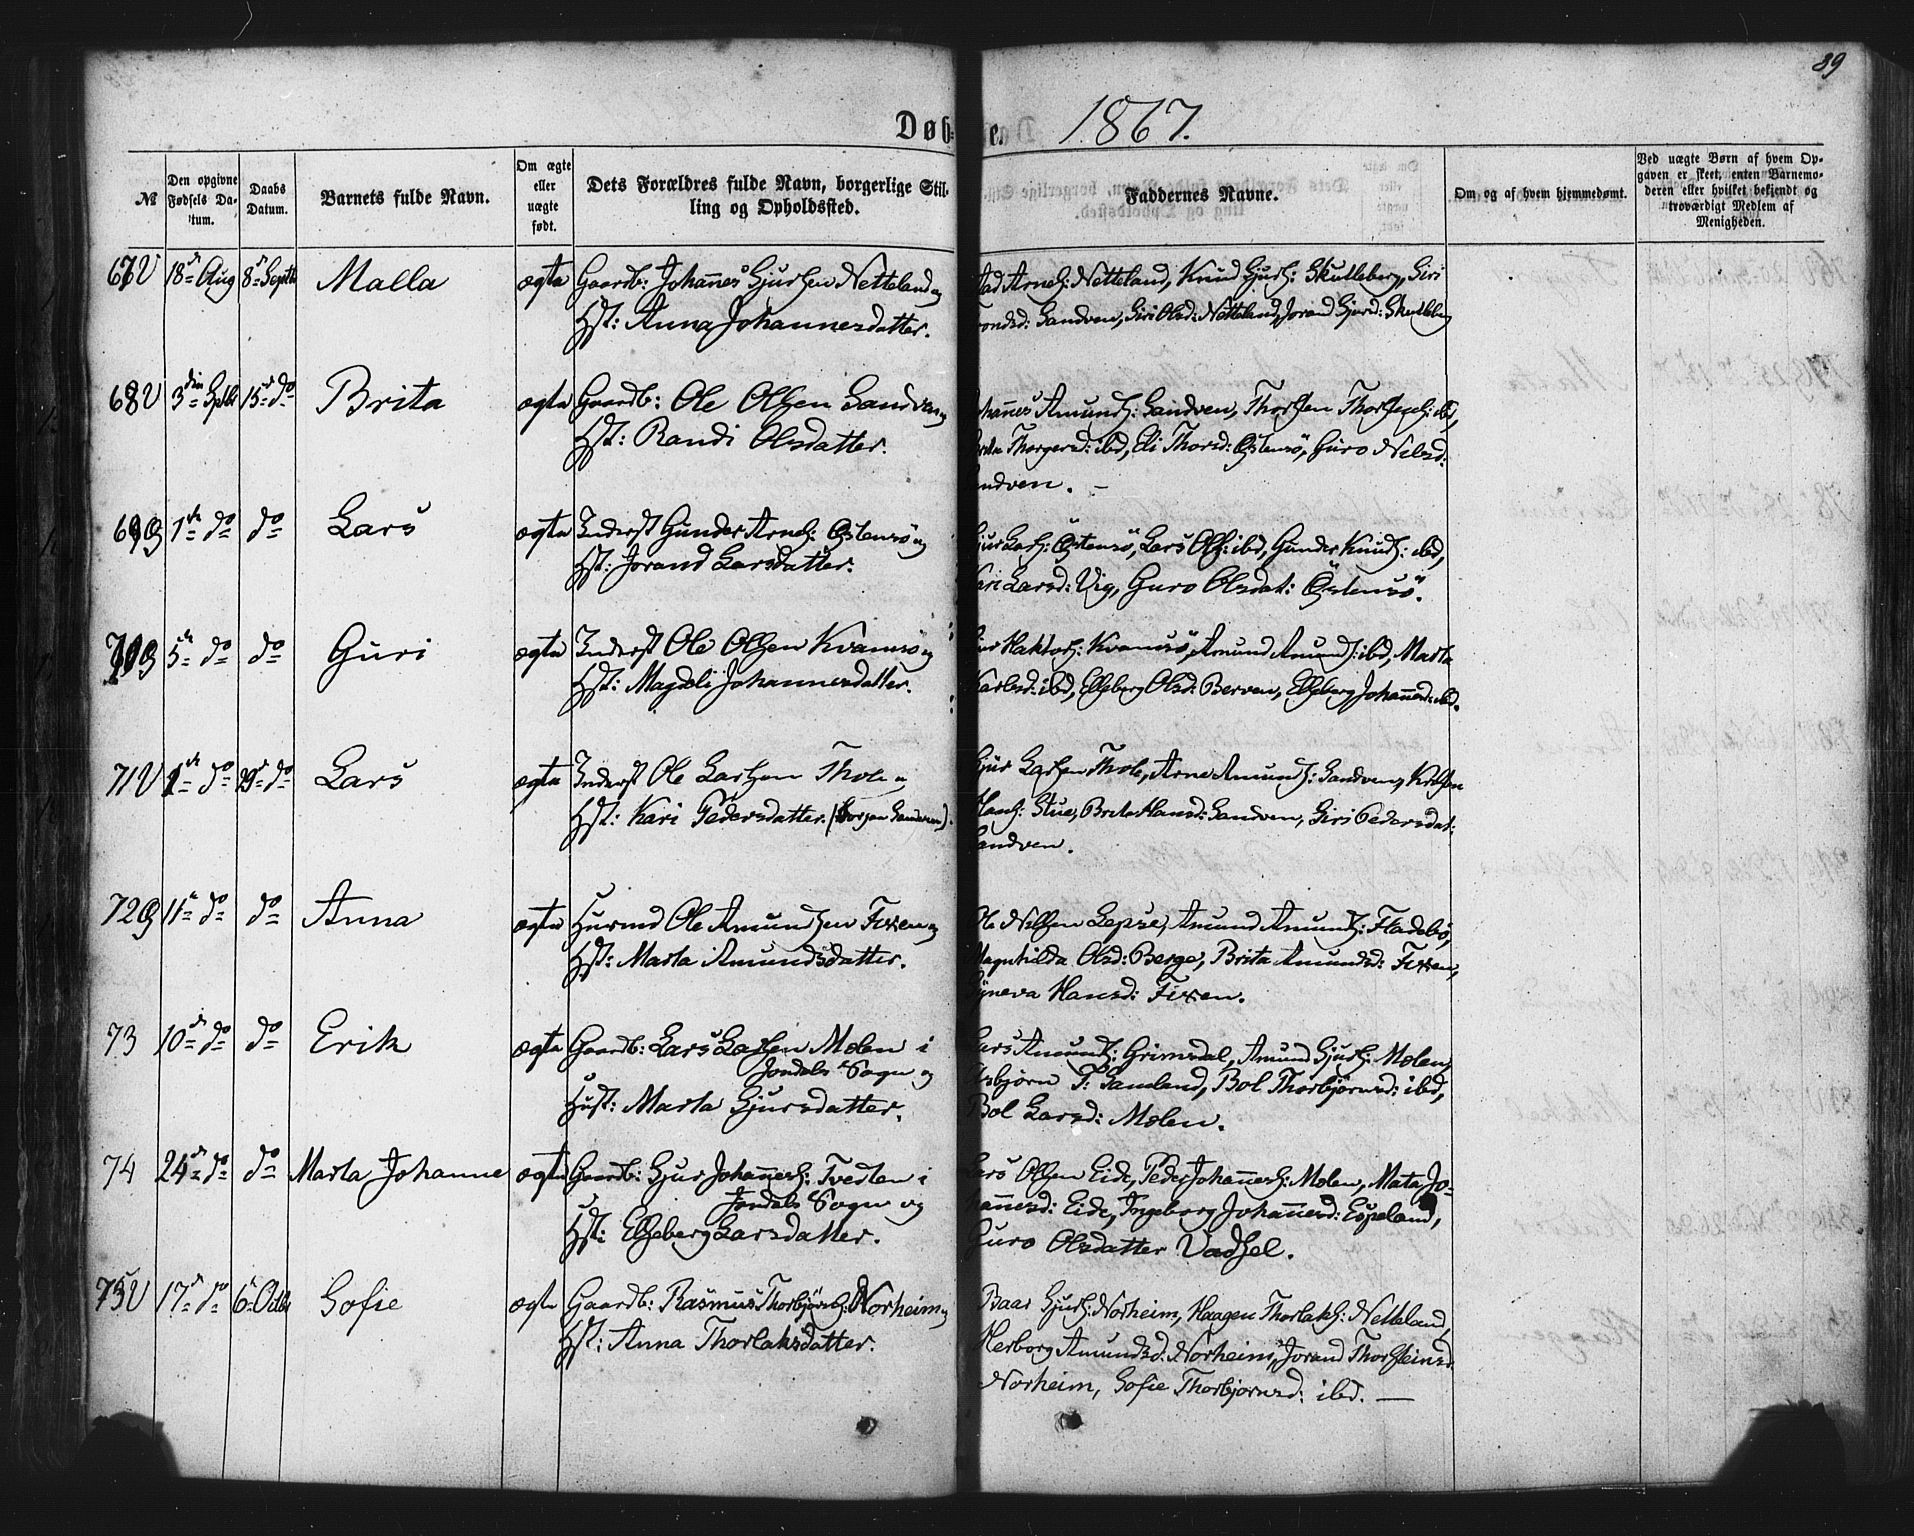 89
Døbe. 1867.
№ | Den opgivne Fødsels Datum. | Daabs Datum. | Barnets fulde Navn. | Om ægte eller uægte født. | Dets Forældres fulde Navn, borgerlige Stilling og Opholdssted. | Faddernes Navne. | Om og af hvem hjemmedømt. | Ved uægte Børn af hvem Opgaven er skeet, enten Barnemoderen eller hvilket bekjendt og troværdigt Medlem af Menigheden.
67V 18d Aug 8d Septb Malla ægte Gaardb: Johannes Sjursen Netteland og
Hst: Anna Johannesdatter.
Arnes: Netteland, Knud Sjurs: Skutleberg, Siri
Sandven, Siri Olsd: Netteland, Jorand Sjursd: Skutleberg
68V 3die Septb 15d do Brita ægte Gaardb: Ole Olsen Sandven og
Hst: Randi Olsdatter.
Johannes Amunds: Sandven, Thorsten Thorstens: ibd,
Thorgersd: ibd, Eli Thorsd: Östensö, Guro Nilsd:
Sandven. —
69Ö 1ste do do Lars ægte Inderst Gunder Arnes: Östensö og
Hst: Jorand Larsdatter.
Sjur Lars: Östensö, Lars Ols: ibd, Gunder Knuds: ibd,
Kari Larsd: Vig, Guro Olsdat: Östensö.
70Ö 5te do do Guri ægte Inderst Ole Olsen Kvamsö og
Hst: Magdeli Johannesdatter.
Haktors: Kvamsö, Amund Amunds: ibd, Marta
Karlsd: ibd, Elseberg Olsd: Berven, Elseberg Johannesd: ibd.
71V 1ste do 29d do Lars ægte Inderst Ole Larsen Thole og
Hst: Kari Pedersdatter. (Borgen Sandven).
Sjur Larsen Thole, Arne Amunds: Sandven,
Hans: Stue, Brita Hansd: Sandven, Siri Pedersdat:
Sandven.
72Ö 11te do do Anna ægte Husmd Ole Amundsen Fixen og
Hst: Marta Amundsdatter.
Ole Nilsen Lepsø, Amund Amunds: Fladebö,
Magnhilda Olsd: Berge, Brita Amundsd: Fixen,
Syneva Hansd: Fixen.
73 10d do do Erik ægte Gaardb: Lars Larsen Molen i
Jondals Sogn og
Hust: Marta Sjursdatter.
Lars Amunds: Grimsdal, Amund Sjurs: Molen,
Asbjörn T: Samland, Bol Thorbjörnsd: ibd,
Bol Larsd: Molen.
74 24d do do Marta Johanne ægte Gaardb: Sjur Johannes: Tvedten i
Jondals Sogn og
Hst: Elseberg Larsdatter.
Lars Olsen Eide, Peder Johannes: Molen, Mata Jo-
hannesd: Eide, Ingeborg Johannesd: Espeland,
Guro Olsdatter Vadsel.
75V 17d do 6te Octbr Sofie ægte Gaardb: Rasmus Thorbjörns: Norheim og
Hst: Anna Thorlaksdatter.
Baar Sjurs: Norheim, Haagen Thorlaks: Netteland,
Herborg Amundsd: Norheim, Jorand Thorsteinsd:
Norheim, Sofie Thorbjornsd: ibd. —